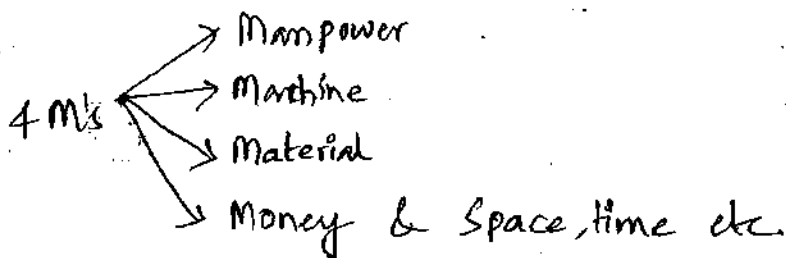 Manpower
4 M's
Machine
Material
Money & Space, time etc.